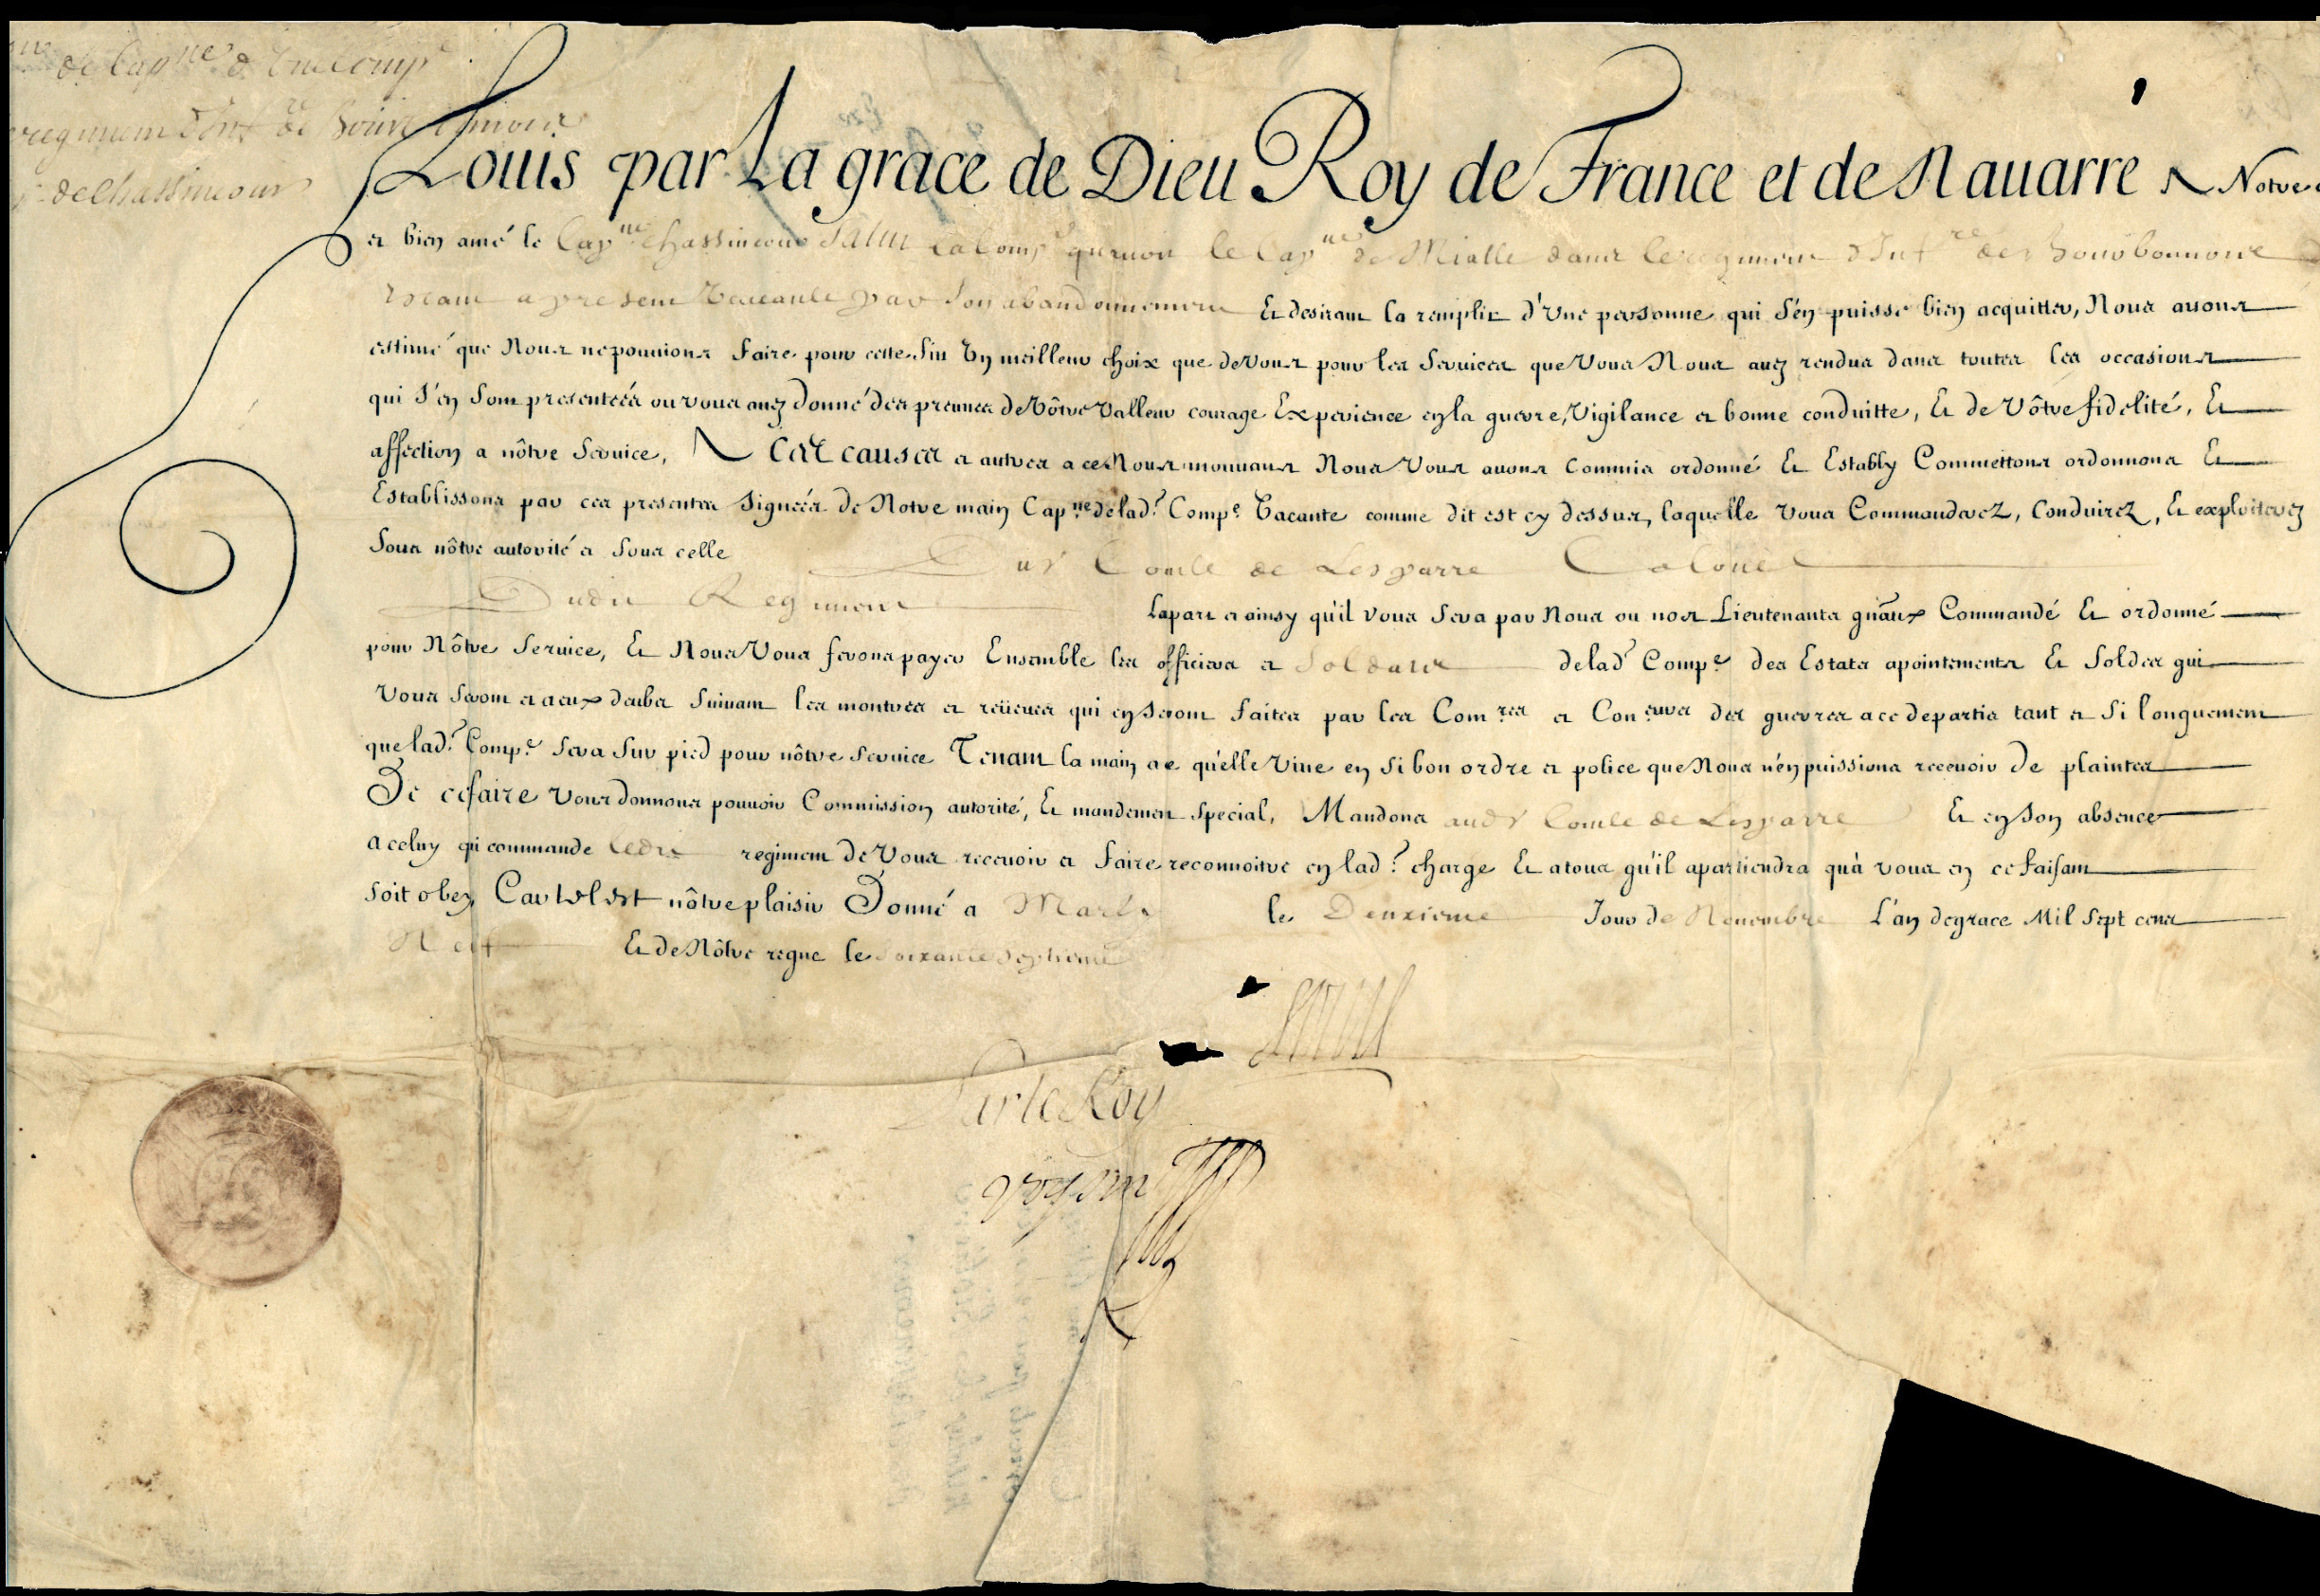 de Cap.ne d'une Comp.e
regiment d'Inf.rie de Bourbonnois
de Chassincour
Louis par La grace de Dieu Roy de France et de Nauarre A Notre
et bien amé le Cap.ne Chassincour Salut La Comp.e qu'auoit le Cap.ne de Mialle dans le regiment d'Inf.rie de Bourbonnois
Estant a present Vaccante par son abandonnement Et desirant la remplir d'Vne personne qui s'en puisse bien acquitter, Nous auons
estimé que Nous ne pouuions faire pour cette fin Vn meilleur choix que de Vous pour les Seruices que Vous Nous auez rendus dans toutes les occasions
qui s'en sont presenteés ou vous auez donné des preuues de Vôtre Valleur courage Experience en la guerre, Vigilance et bonne conduitte, Et de Vôtre fidelité, Et
affection a nôtre Seruice, A Ces causes et autres a ce Nous mouuans Nous Vous auons Commis ordonné Et Estably Commettons ordonnons Et
Establissons par ces presentes Signeés de Notre main Cap.ne de lad.e Comp.e Vacante comme dit est cy dessus, laquelle Vous Commanderez, Conduirez, Et exploiterez
Sous nôtre autorité et Sous celle Du S.r Comte de Lesparre Colonel
Dudit Regiment Lapart et ainsy qu'il Vous Sera par Nous ou nos Lieutenants gnãux Commandé Et ordonné
pour Nôtre Seruice, Et Nous Vous ferons payer Ensemble les officiers et Soldats de lad.e Comp.e des Estats apointements Et Soldes qui
Vous Seront et a eux deubs Suiuant les montres et reüeues qui en Seront faites par les Com.res et Con.eurs des guerres a ce departis tant et Si longuement
que lad.e Comp.e Sera Sur pied pour nôtre Seruice Tenant la main a ce qu'elle Viue en Si bon ordre et police que Nous n'en puissions receuoir de plaintes
De ce faire Vous donnons pouuoir Commission autorité, Et mandement Special, Mandons aud.t S.r Comte de Lesparre Et en Son absence
A celuy qui commande ledit regiment de Vous receuoir et faire reconnoitre en lad.e charge Et a tous qu'il apartiendra qu'à vous en ce faisant
Soit obey Car tel est nôtre plaisir Donné a Marly le Deuxieme Jour de Nouembre L'an de grace Mil Sept cens
Neuf Et de Nôtre regne le Soixante Septieme
Louis
Par le Roy
Voysin